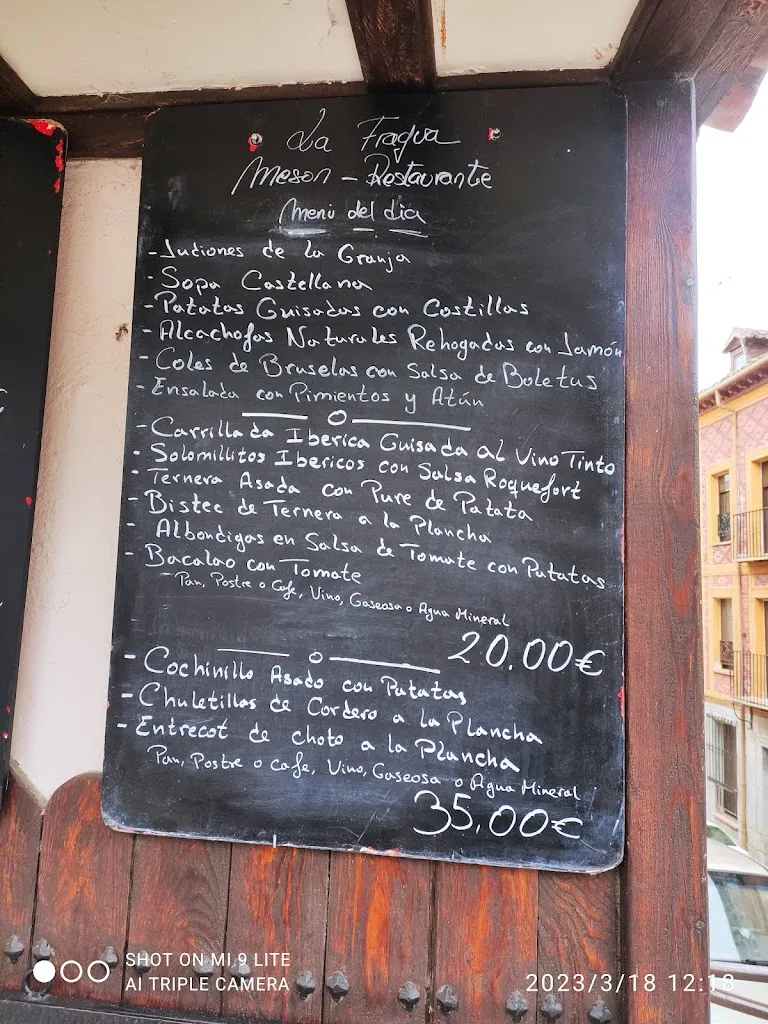 La Fragua
Meson - Restaurante
Menú del dia
- Judiones de la Granja
- Sopa Castellana
- Patatas Guisadas con Costillas
- Alcachofas Naturales Rehogadas con Jamón
- Coles de Bruselas con Salsa de Boletus
- Ensalada con Pimientos y Atún
- Carrillada Iberica Guisada al Vino Tinto
- Solomillitos Ibericos con Salsa Roquefort
- Ternera Asada con Pure de Patata
- Bistec de Ternera a la Plancha
- Albondigas en Salsa de Tomate con Patatas
- Bacalao con Tomate
- Pan, Postre o Cafe, Vino, Gaseosa o Agua Mineral
20.00€
- Cochinillo Asado con Patatas
- Chuletillas de Cordero a la Plancha
- Entrecot de choto a la Plancha
Pan, Postre o cafe, Vino, Gaseosa o Agua Mineral
35,00€
SHOT ON MI 9 LITE
AI TRIPLE CAMERA
2023/3/18 12:18